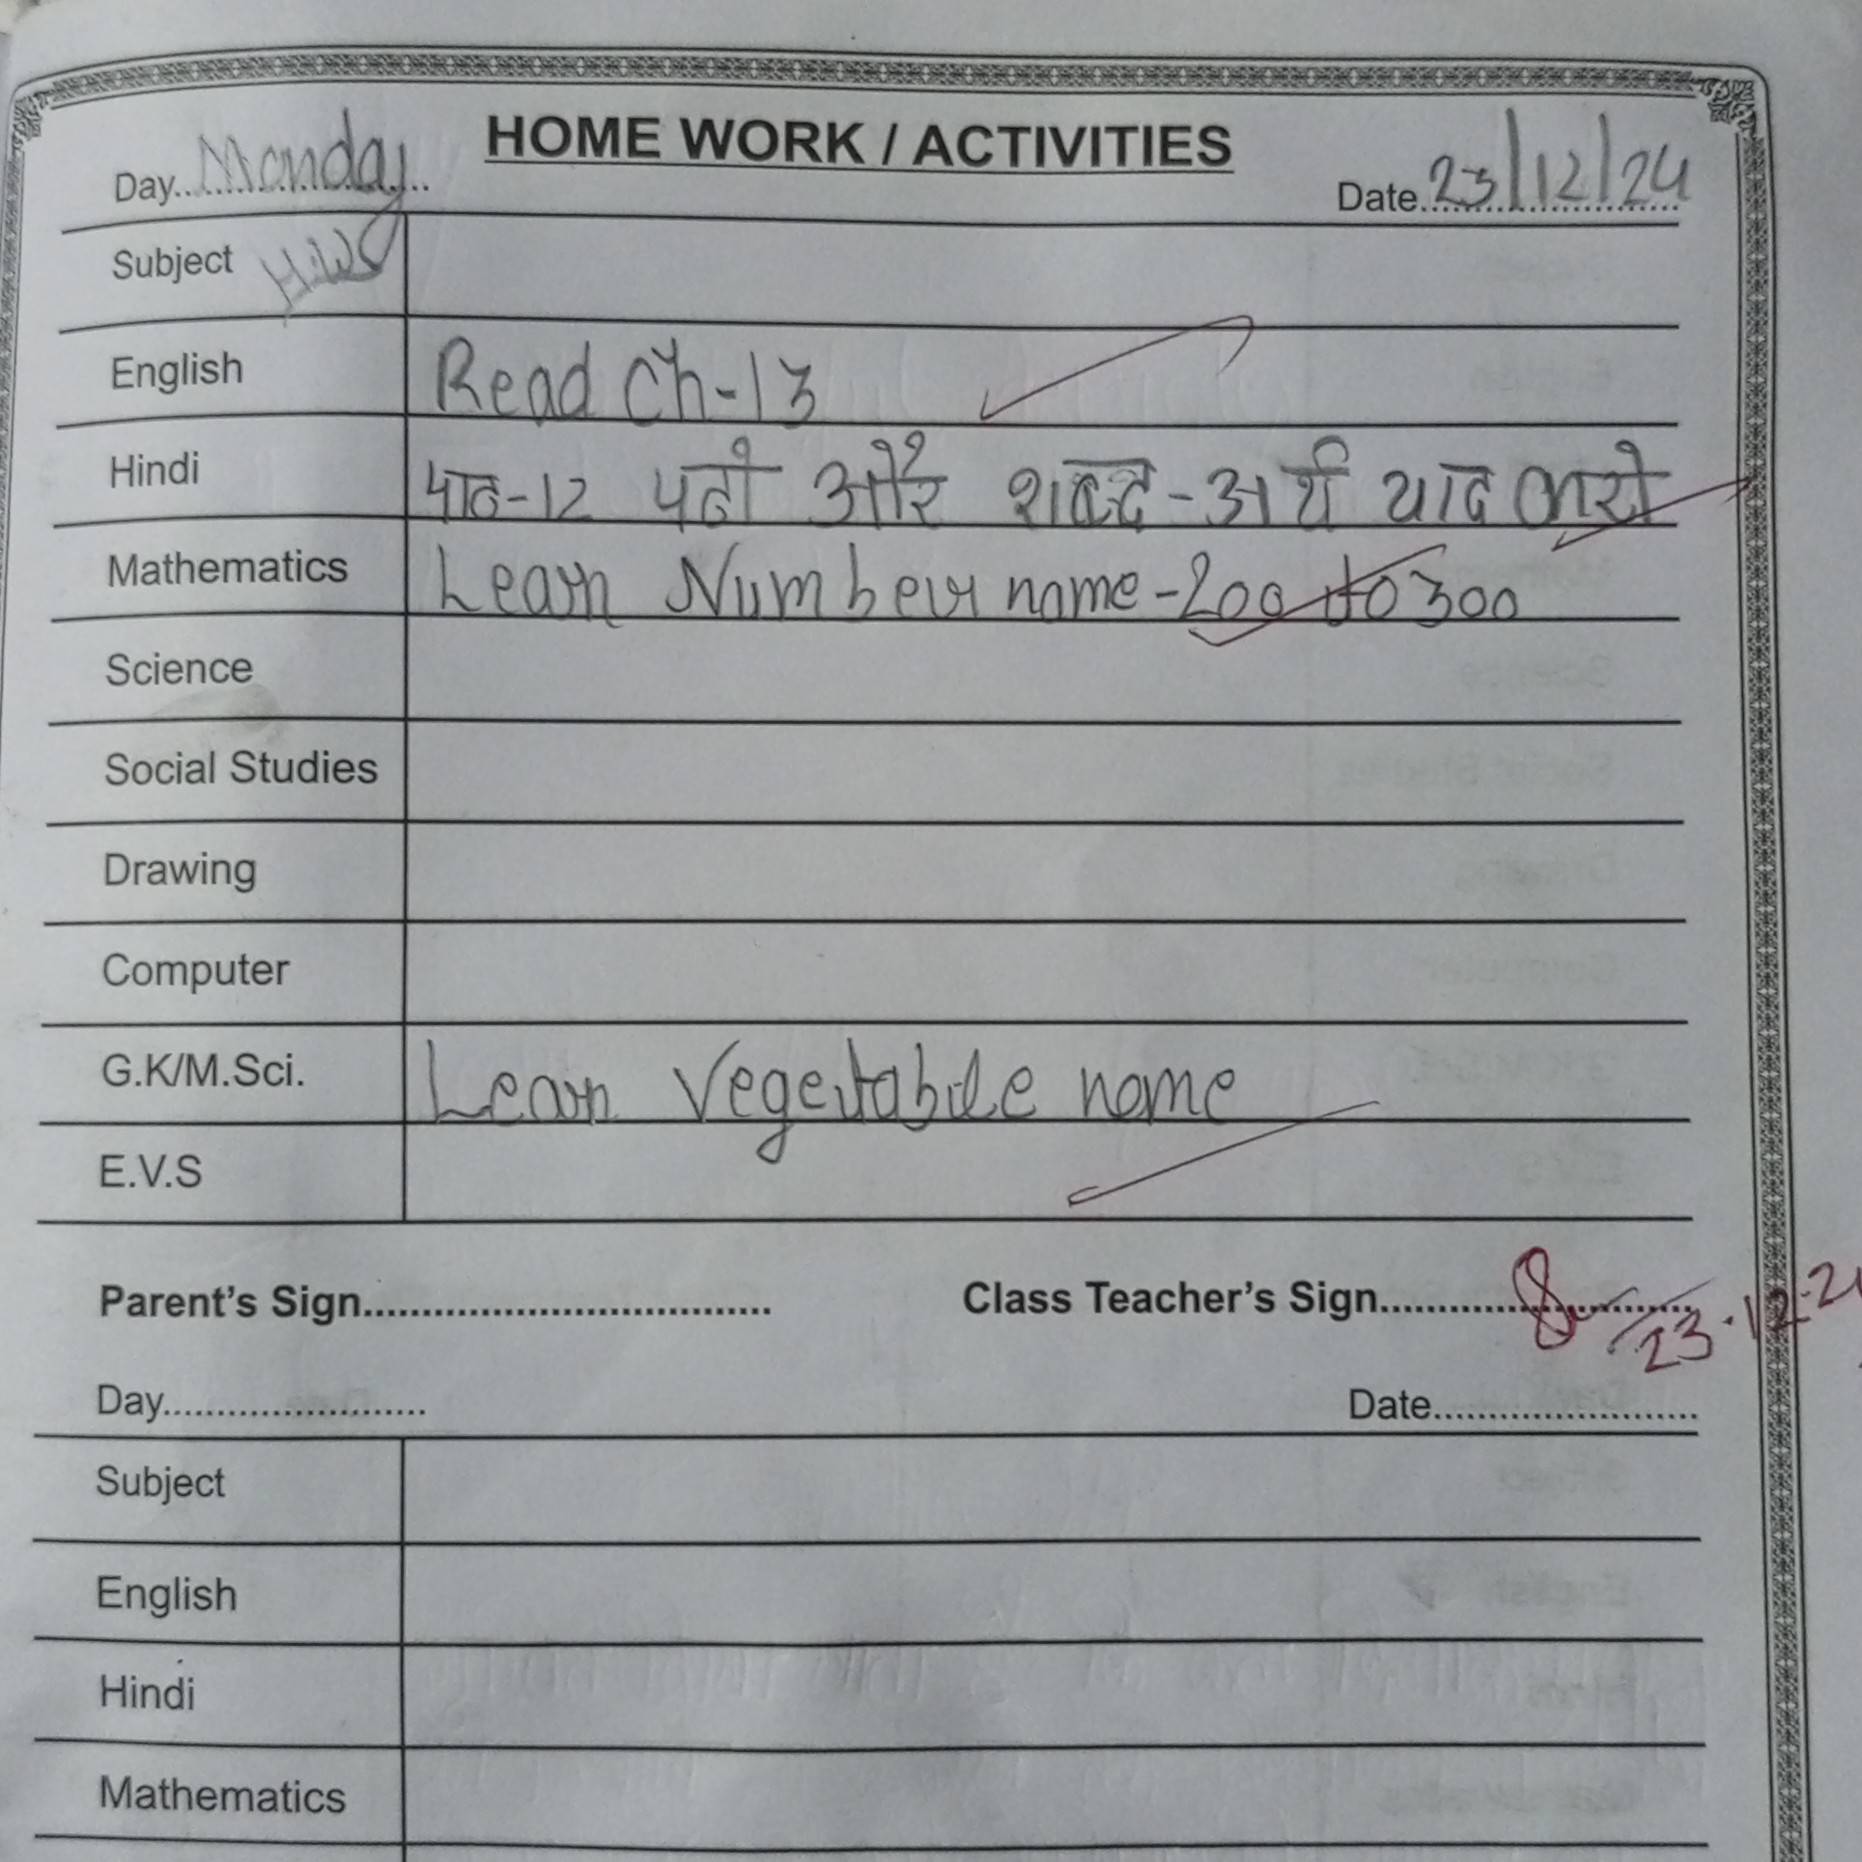 HOME WORK / ACTIVITIES
Day Monday Date 23/12/24
Subject H.W
English Read Ch-13
Hindi पाठ-12 पढ़ो और शब्द-अर्थ याद करो
Mathematics Learn Number name-200 to 300
Science
Social Studies
Drawing
Computer
G.K/M.Sci. Learn Vegetable name
E.V.S
Parent's Sign Class Teacher's Sign 23.12.24
Day Date
Subject
English
Hindi
Mathematics